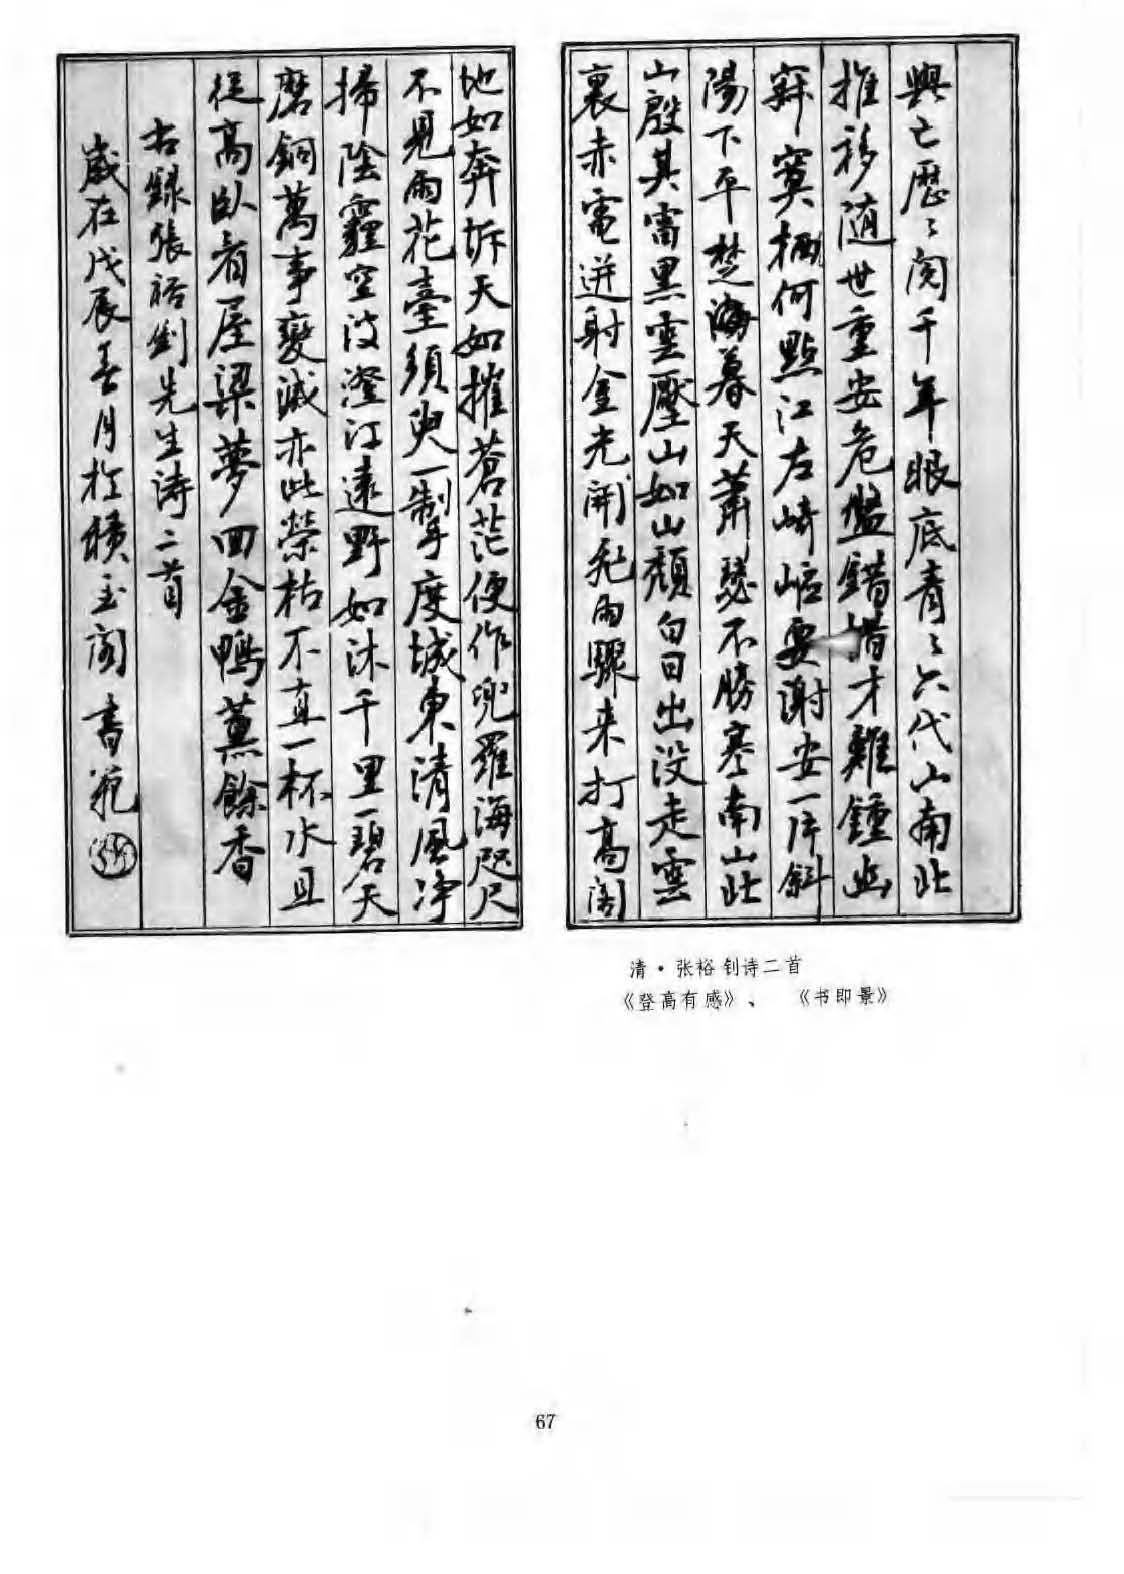 興亡歷〻閱千年眼底青〻六代山南北
推移随世重安危盤錯措才難鍾山
寂寞栖何點江左崎嶇要謝安一片斜
陽下平楚海暮天蕭瑟不勝寒南山此
山殷其雷黑雲壓山如山頹白日出没走雲
裏赤電迸射金光開飛雨驟来打高閣
地如奔坼天如摧蒼茫便作兜羅海咫尺
不見雨花臺須臾一掣度城東清風净
掃陰霾空波澄江遠野如沐千里一碧天
磨銅萬事變滅亦此榮枯不直一杯水且
從高臥看屋梁夢回金鴨薰餘香
右録張裕釗先生诗二首
歲在戊辰春月於積玉阁書範
清·张裕钊诗二首
《登高有感》、《书即景》
67